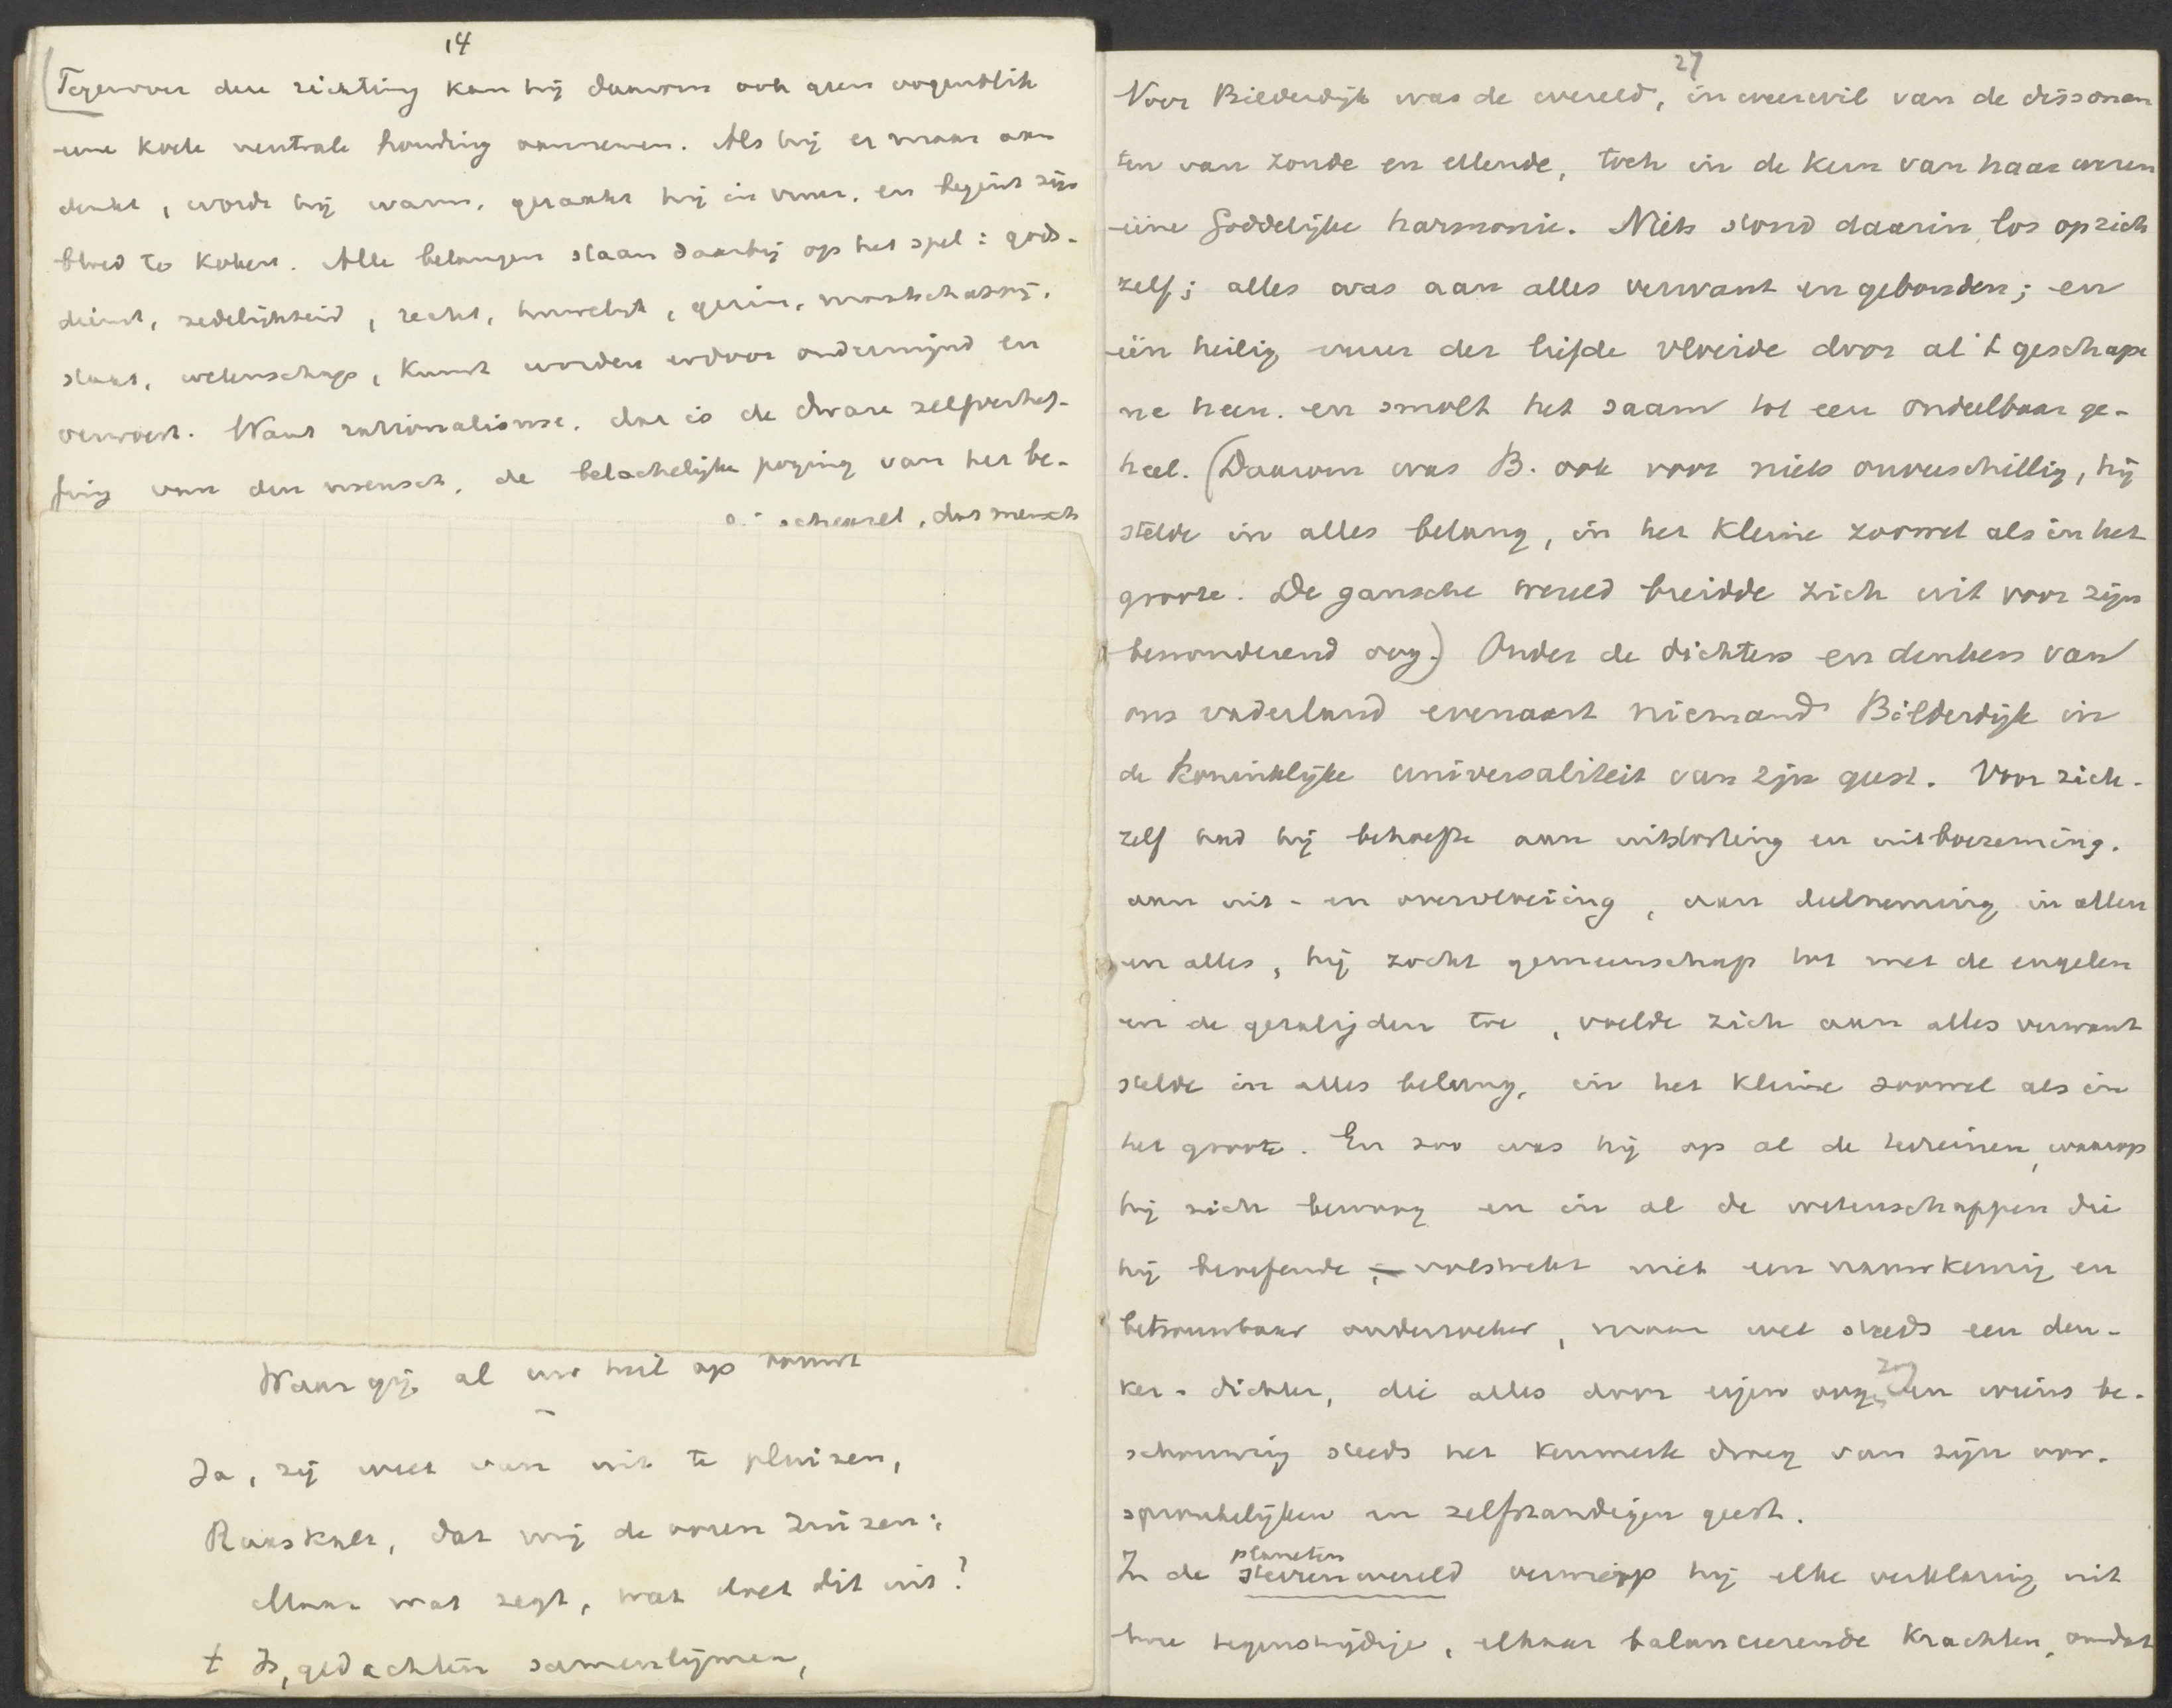 14
Tegenover deze richting kan hij daarom ook geen oogenblik
eene koele neutrale houding aannemen. Als hij er maar aan
denkt, wordt hij warm, geraakt hij in vuur, en begint zijn
bloed te koken. Alle belangen staan daarbij op het spel: gods-
dienst, zedelijkheid, recht, huwelijk, gezin, maatschappij,
staat, wetenschap, kunst worden erdoor ondermijnd en
verwoest. Want rationalisme, dat is de dwaze zelfverhef-
fing van den mensch, de belachelijke poging van het be-
schepsel, dat mensch
Waar gij al uw heil op bouwt
Ja, zij weet van uit te pluizen,
Raaskalt, dat mij de ooren suizen;
Maar wat zegt, wat doet dit uit?
't Is, gedachten samenlijmen,
27
Voor Bilderdijk was de wereld, in weerwil van de dissonan
ten van zonde en ellende, toch in de kern van haar wezen
ééne Goddelijke harmonie. Niets stond daarin los op zich
zelf; alles was aan alles verwant en gebonden; en
één heilig vuur der liefde vloeide door al 't geschape
ne heen. en smolt het saam tot een ondeelbaar ge-
heel. (Daarom was B. ook voor niets onverschillig, hij
stelde in alles belang, in het kleine zoowel als in het
groote. De gansche wereld breidde zich uit voor zijn
bewonderend oog.) Onder de dichters en denkers van
ons vaderland evenaart niemand Bilderdijk in
de koninklijke universaliteit van zijn geest. Voor zich-
zelf had hij behoefte aan uitstorting en uitboezeming,
aan uit- en overvloeiing, aan deelneming in allen
en alles, hij zocht gemeenschap tot met de engelen
en de gezaligden toe, voelde zich aan alles verwant
stelde in alles belang, in het kleine zoowel als in
het groote. En zoo was hij op al de terreinen, waarop
hij zich bewoog en in al de wetenschappen die
hij beoefende, volstrekt niet een nauwkeurig en
betrouwbaar onderzoeker, maar wel steeds een den-
ker-dichter, die alles door eigen oog zag en wiens be-
schouwing steeds het kenmerk droeg van zijn oor-
spronkelijken en zelfstandigen geest.
In de planeten sterrenwereld verwierp hij elke verklaring uit
twee tegenstrijdige, elkaar balanceerende krachten, omdat